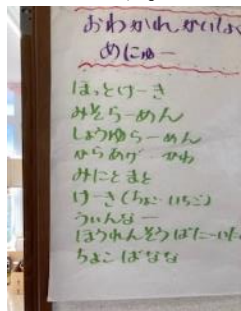 おわかれかいしょく
めにゅー
ほっとけーき
みそらーめん
しょうゆらーめん
からあげ かわ
みにとまと
けーき(ちょこ いちご)
ういんなー
ほうれんそうばたーいた
ちょこばなな